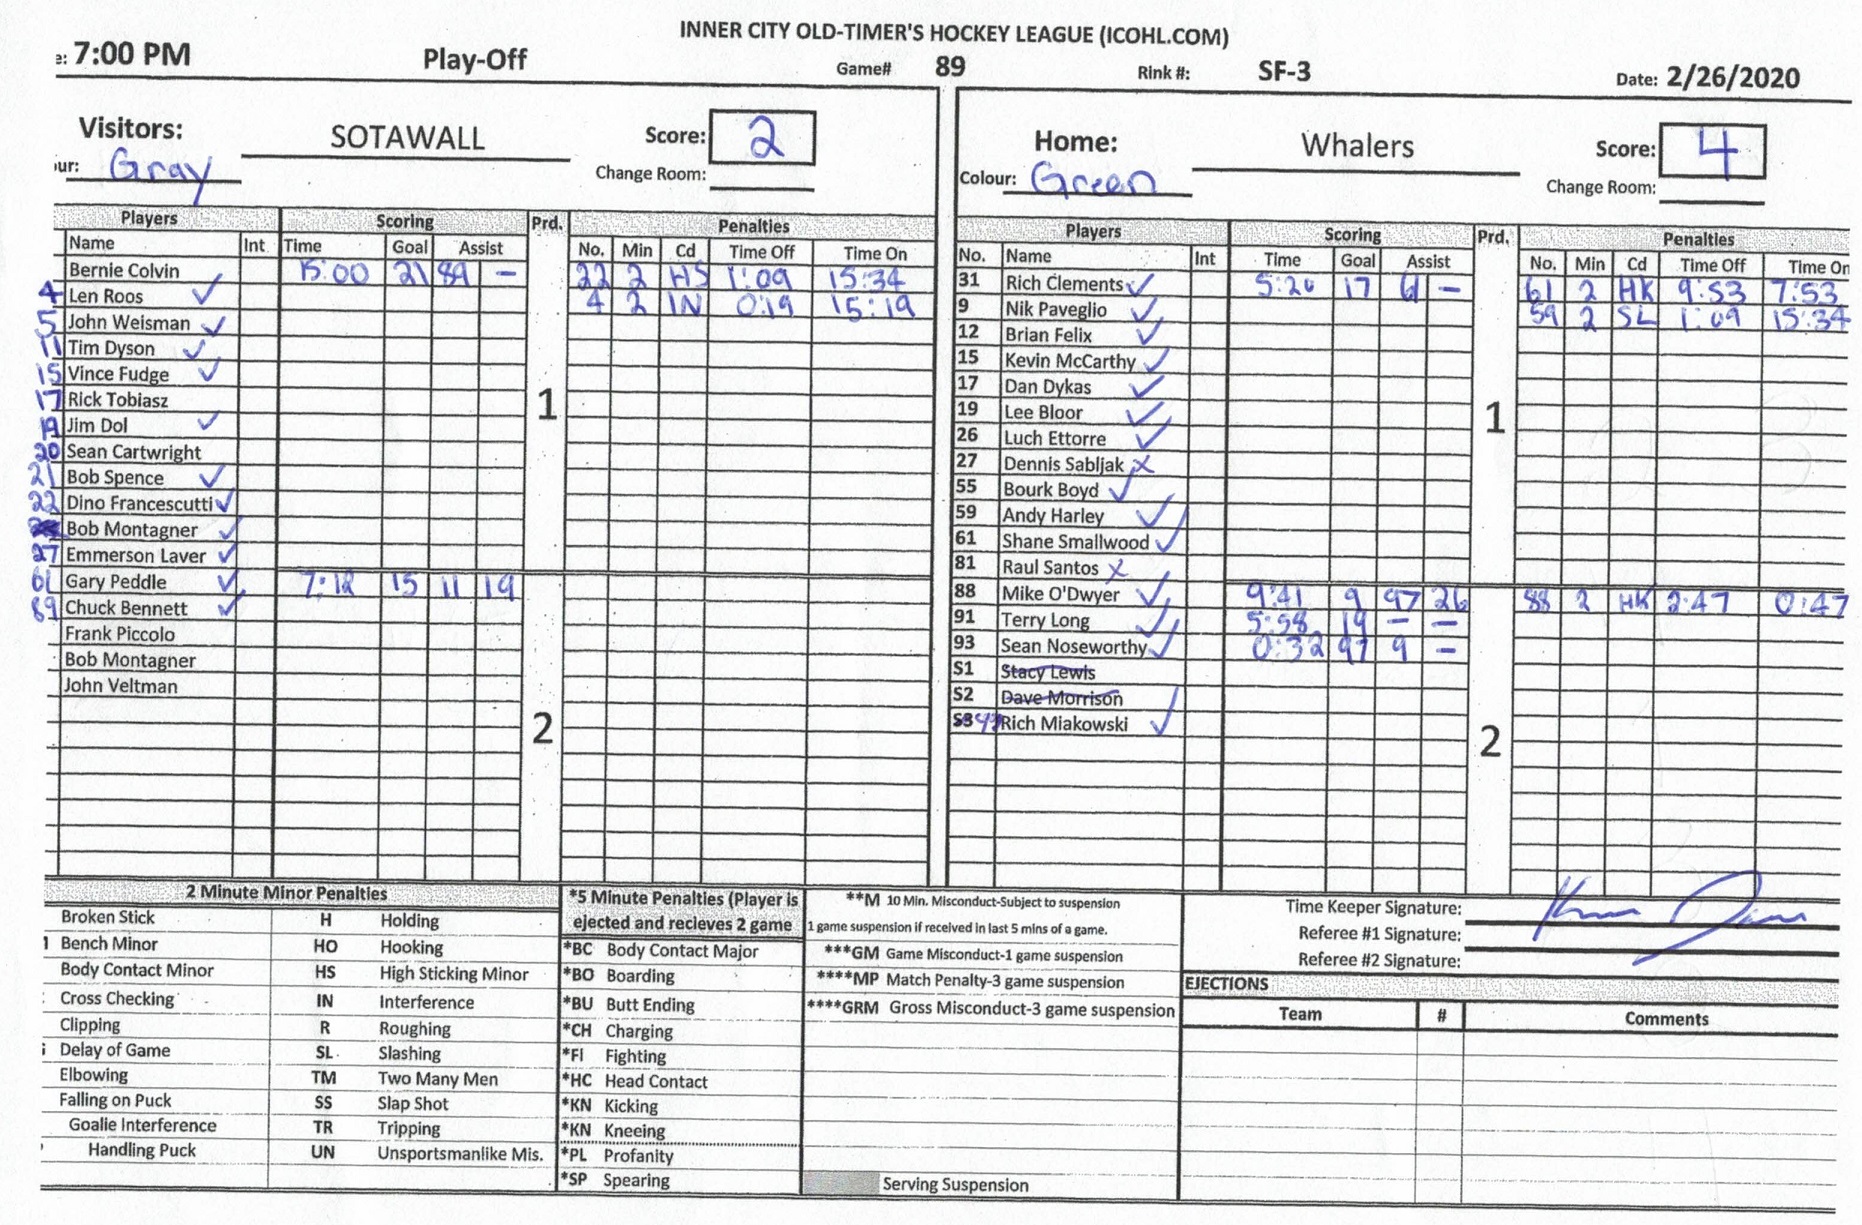 INNER CITY OLD-TIMER'S HOCKEY LEAGUE (ICOHL.COM)
e: 7:00 PM Play-Off Game# 89 Rink #: SF-3 Date: 2/26/2020
Visitors: SOTAWALL Score: 2
ur: Gray Change Room:
Players Scoring Prd. Penalties
Name Int Time Goal Assist No. Min Cd Time Off Time On
Bernie Colvin 15:00 21 89 - 22 2 HS 1:09 15:34
4 Len Roos ✓ 4 2 IN 0:19 15:19
5 John Weisman ✓
11 Tim Dyson ✓
15 Vince Fudge ✓
17 Rick Tobiasz
1
19 Jim Dol ✓
20 Sean Cartwright
21 Bob Spence ✓
22 Dino Francescutti ✓
Bob Montagner ✓
27 Emmerson Laver ✓
61 Gary Peddle ✓ 7:12 15 11 19
89 Chuck Bennett ✓
Frank Piccolo
Bob Montagner
John Veltman
2
Home: Whalers Score: 4
Colour: Green Change Room:
Players Scoring Prd. Penalties
No. Name Int Time Goal Assist No. Min Cd Time Off Time On
31 Rich Clements ✓ 5:20 17 61 - 61 2 HK 9:53 7:53
9 Nik Paveglio ✓ 59 2 SL 1:09 15:34
12 Brian Felix ✓
15 Kevin McCarthy ✓
17 Dan Dykas ✓
19 Lee Bloor ✓
1
26 Luch Ettorre ✓
27 Dennis Sabljak x
55 Bourk Boyd ✓
59 Andy Harley ✓
61 Shane Smallwood ✓
81 Raul Santos x
88 Mike O'Dwyer ✓ 9:41 9 97 26 88 2 HK 2:47 0:47
91 Terry Long ✓ 5:58 19 - -
93 Sean Noseworthy ✓ 0:32 97 9 -
S1 Stacy Lewis
S2 Dave Morrison
S3 Rich Miakowski ✓
2
2 Minute Minor Penalties
Broken Stick H Holding
1 Bench Minor HO Hooking
Body Contact Minor HS High Sticking Minor
Cross Checking IN Interference
Clipping R Roughing
Delay of Game SL Slashing
Elbowing TM Two Many Men
Falling on Puck SS Slap Shot
Goalie Interference TR Tripping
Handling Puck UN Unsportsmanlike Mis.
*5 Minute Penalties (Player is
ejected and recieves 2 game
*BC Body Contact Major
*BO Boarding
*BU Butt Ending
*CH Charging
*FI Fighting
*HC Head Contact
*KN Kicking
*KN Kneeing
*PL Profanity
*SP Spearing
**M 10 Min. Misconduct-Subject to suspension
1 game suspension if received in last 5 mins of a game.
***GM Game Misconduct-1 game suspension
****MP Match Penalty-3 game suspension
****GRM Gross Misconduct-3 game suspension
Serving Suspension
Time Keeper Signature:
Referee #1 Signature:
Referee #2 Signature:
EJECTIONS
Team # Comments